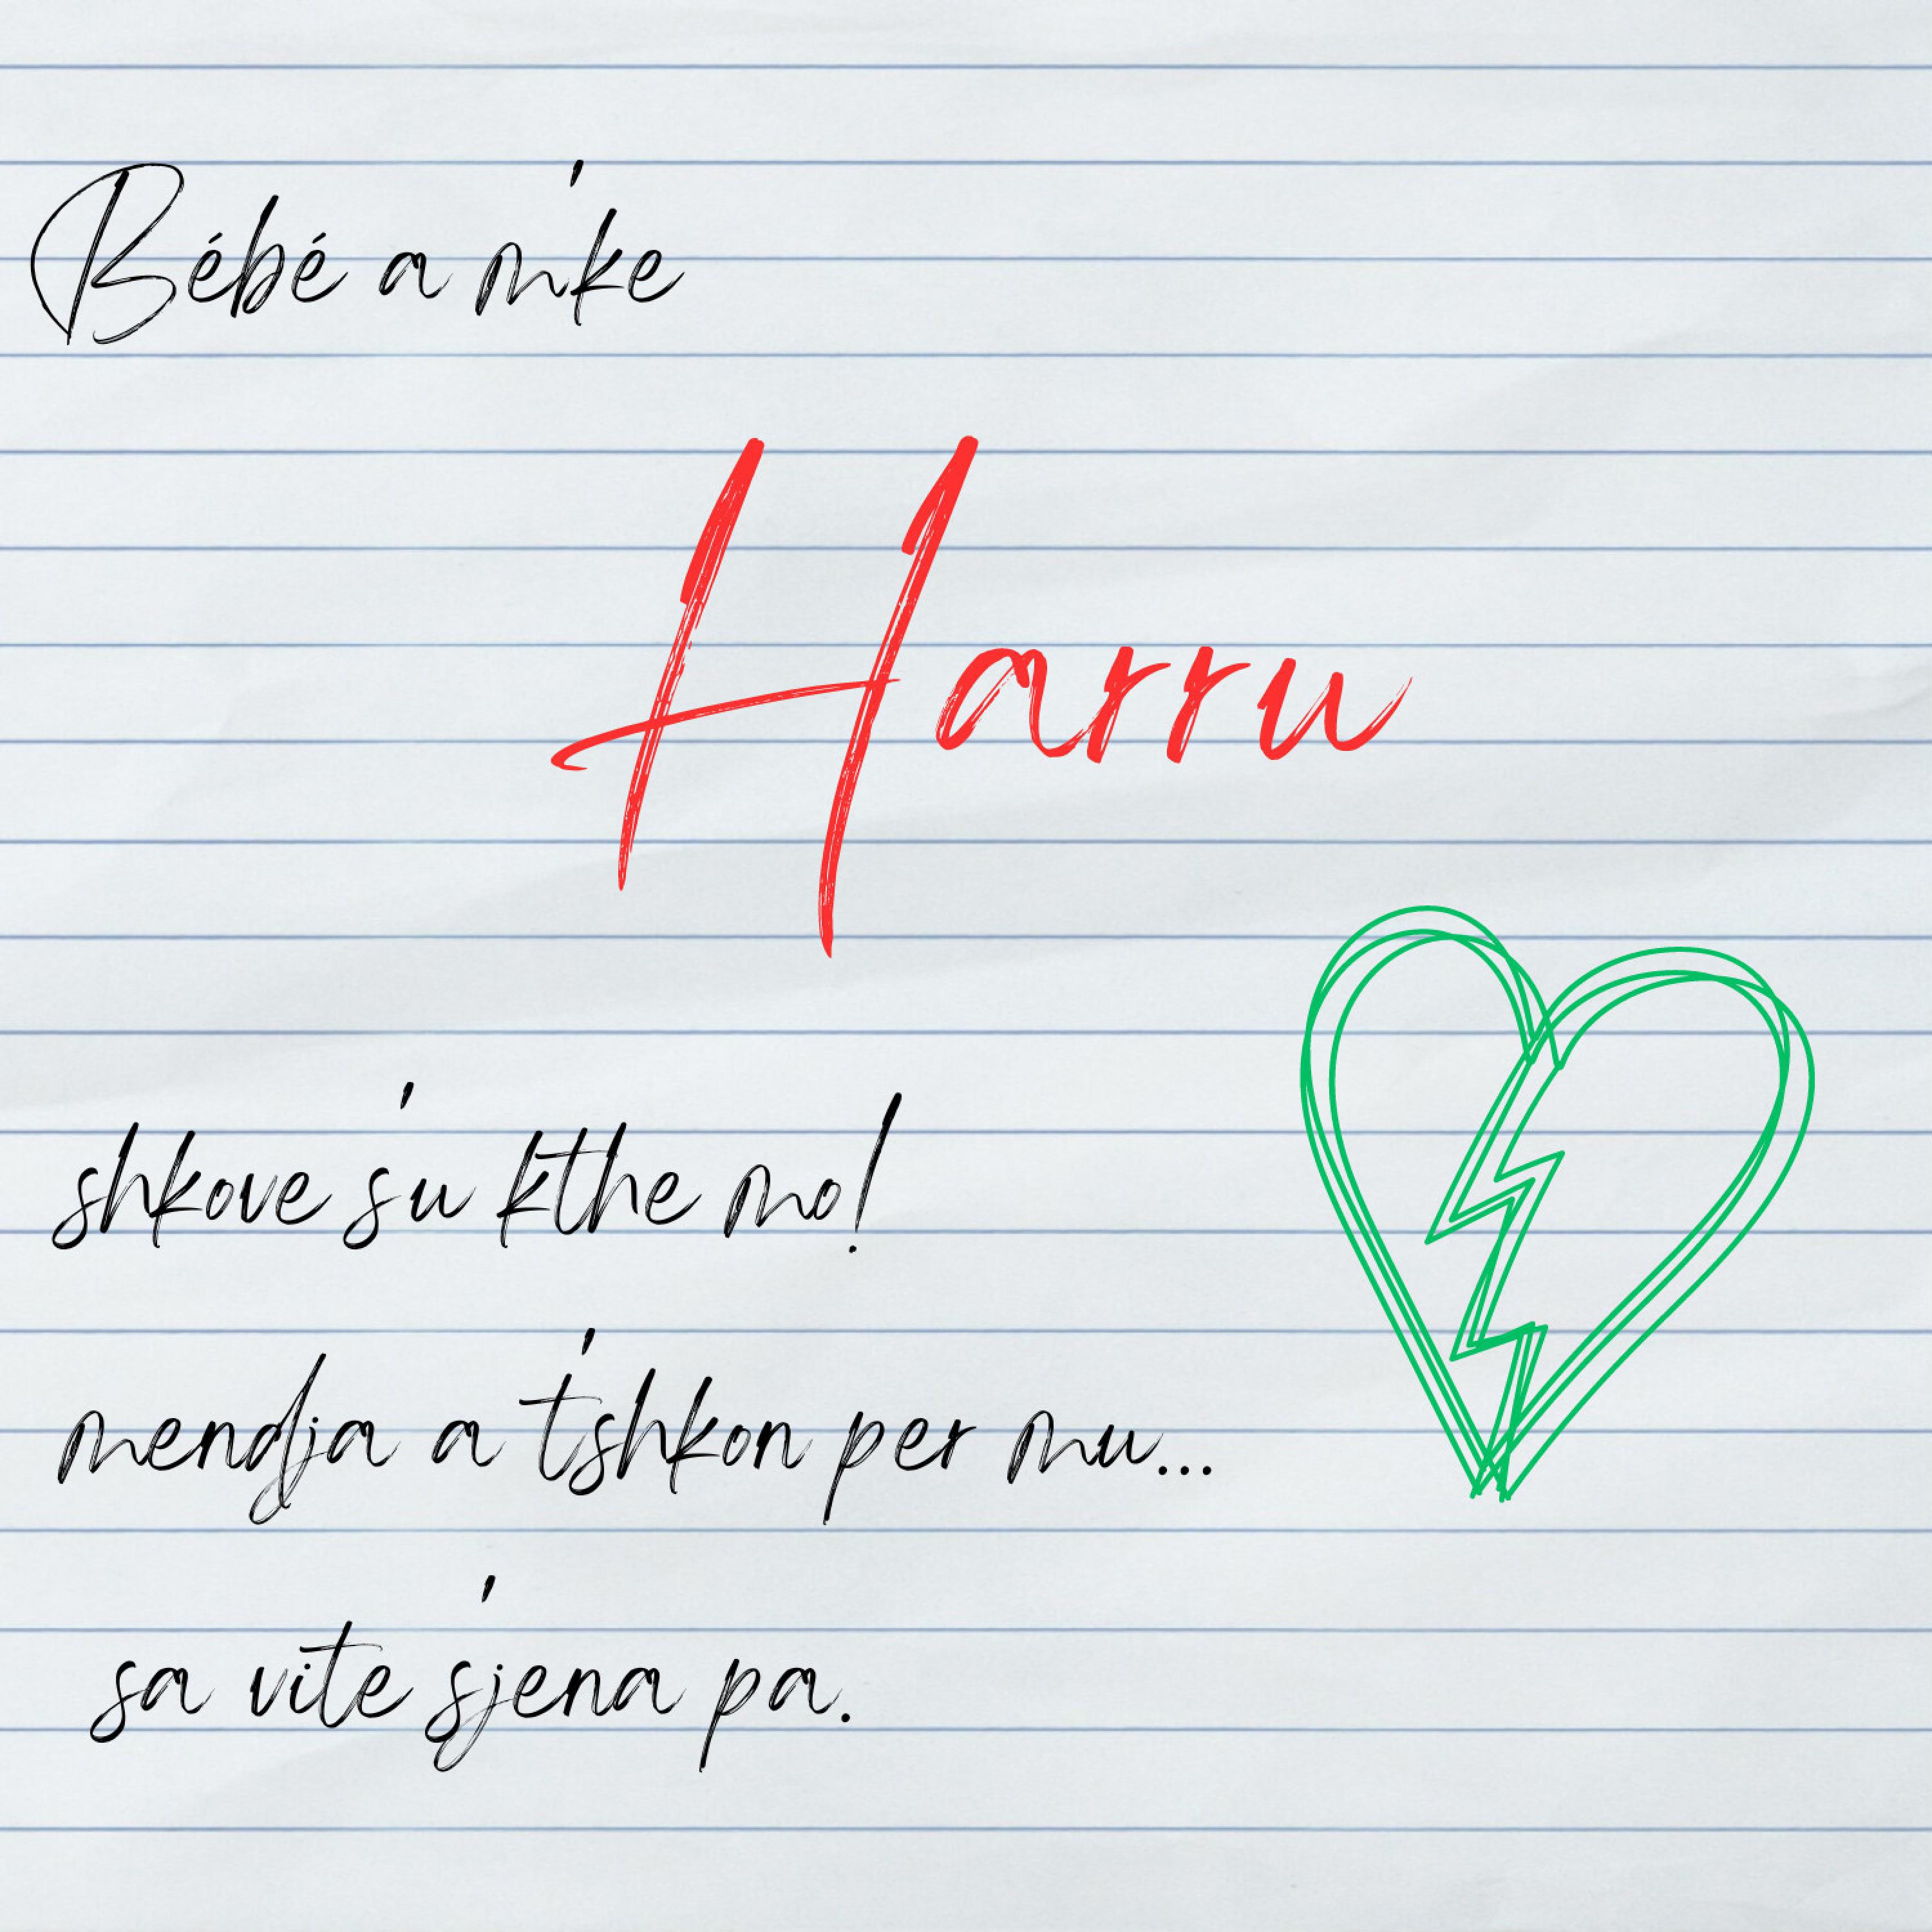 Bébé a m'ke
Harru
shkove s'u kthe mo!
mendja a t'shkon per mu...
sa vite s'jena pa.